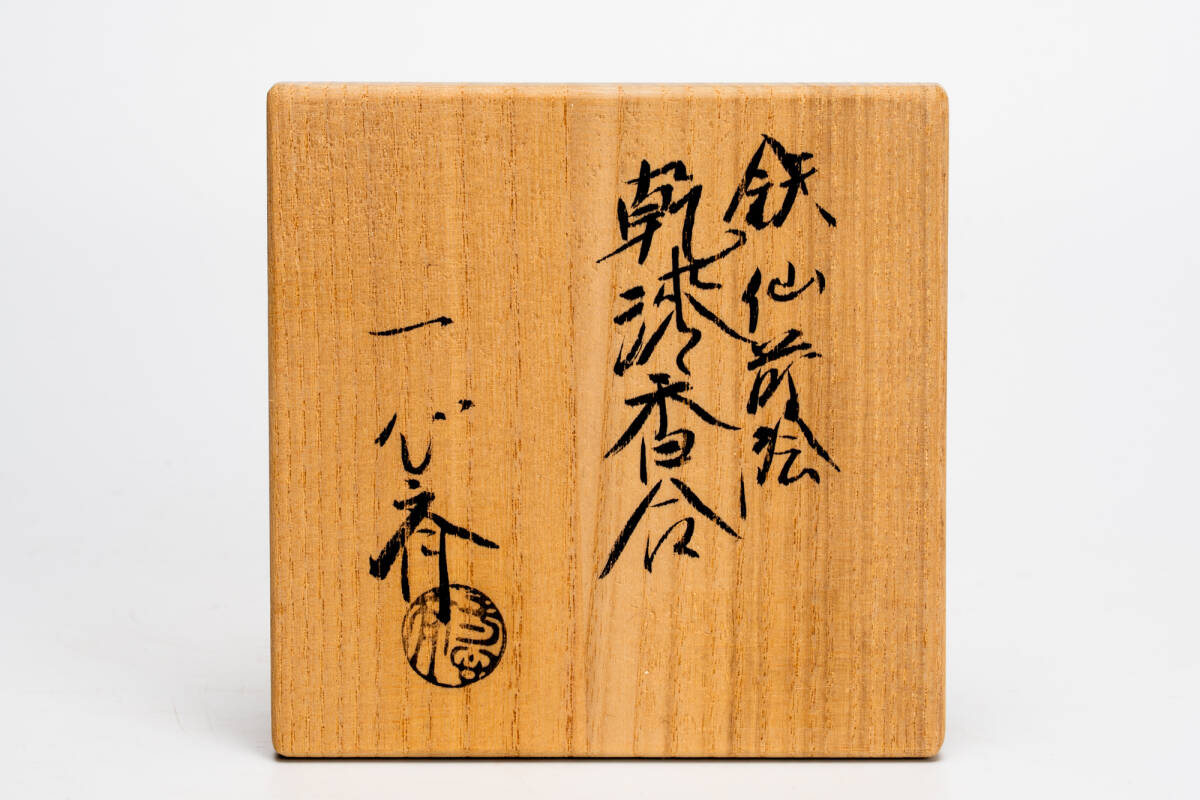 鉄仙蒔絵
乾漆香合
一心斎